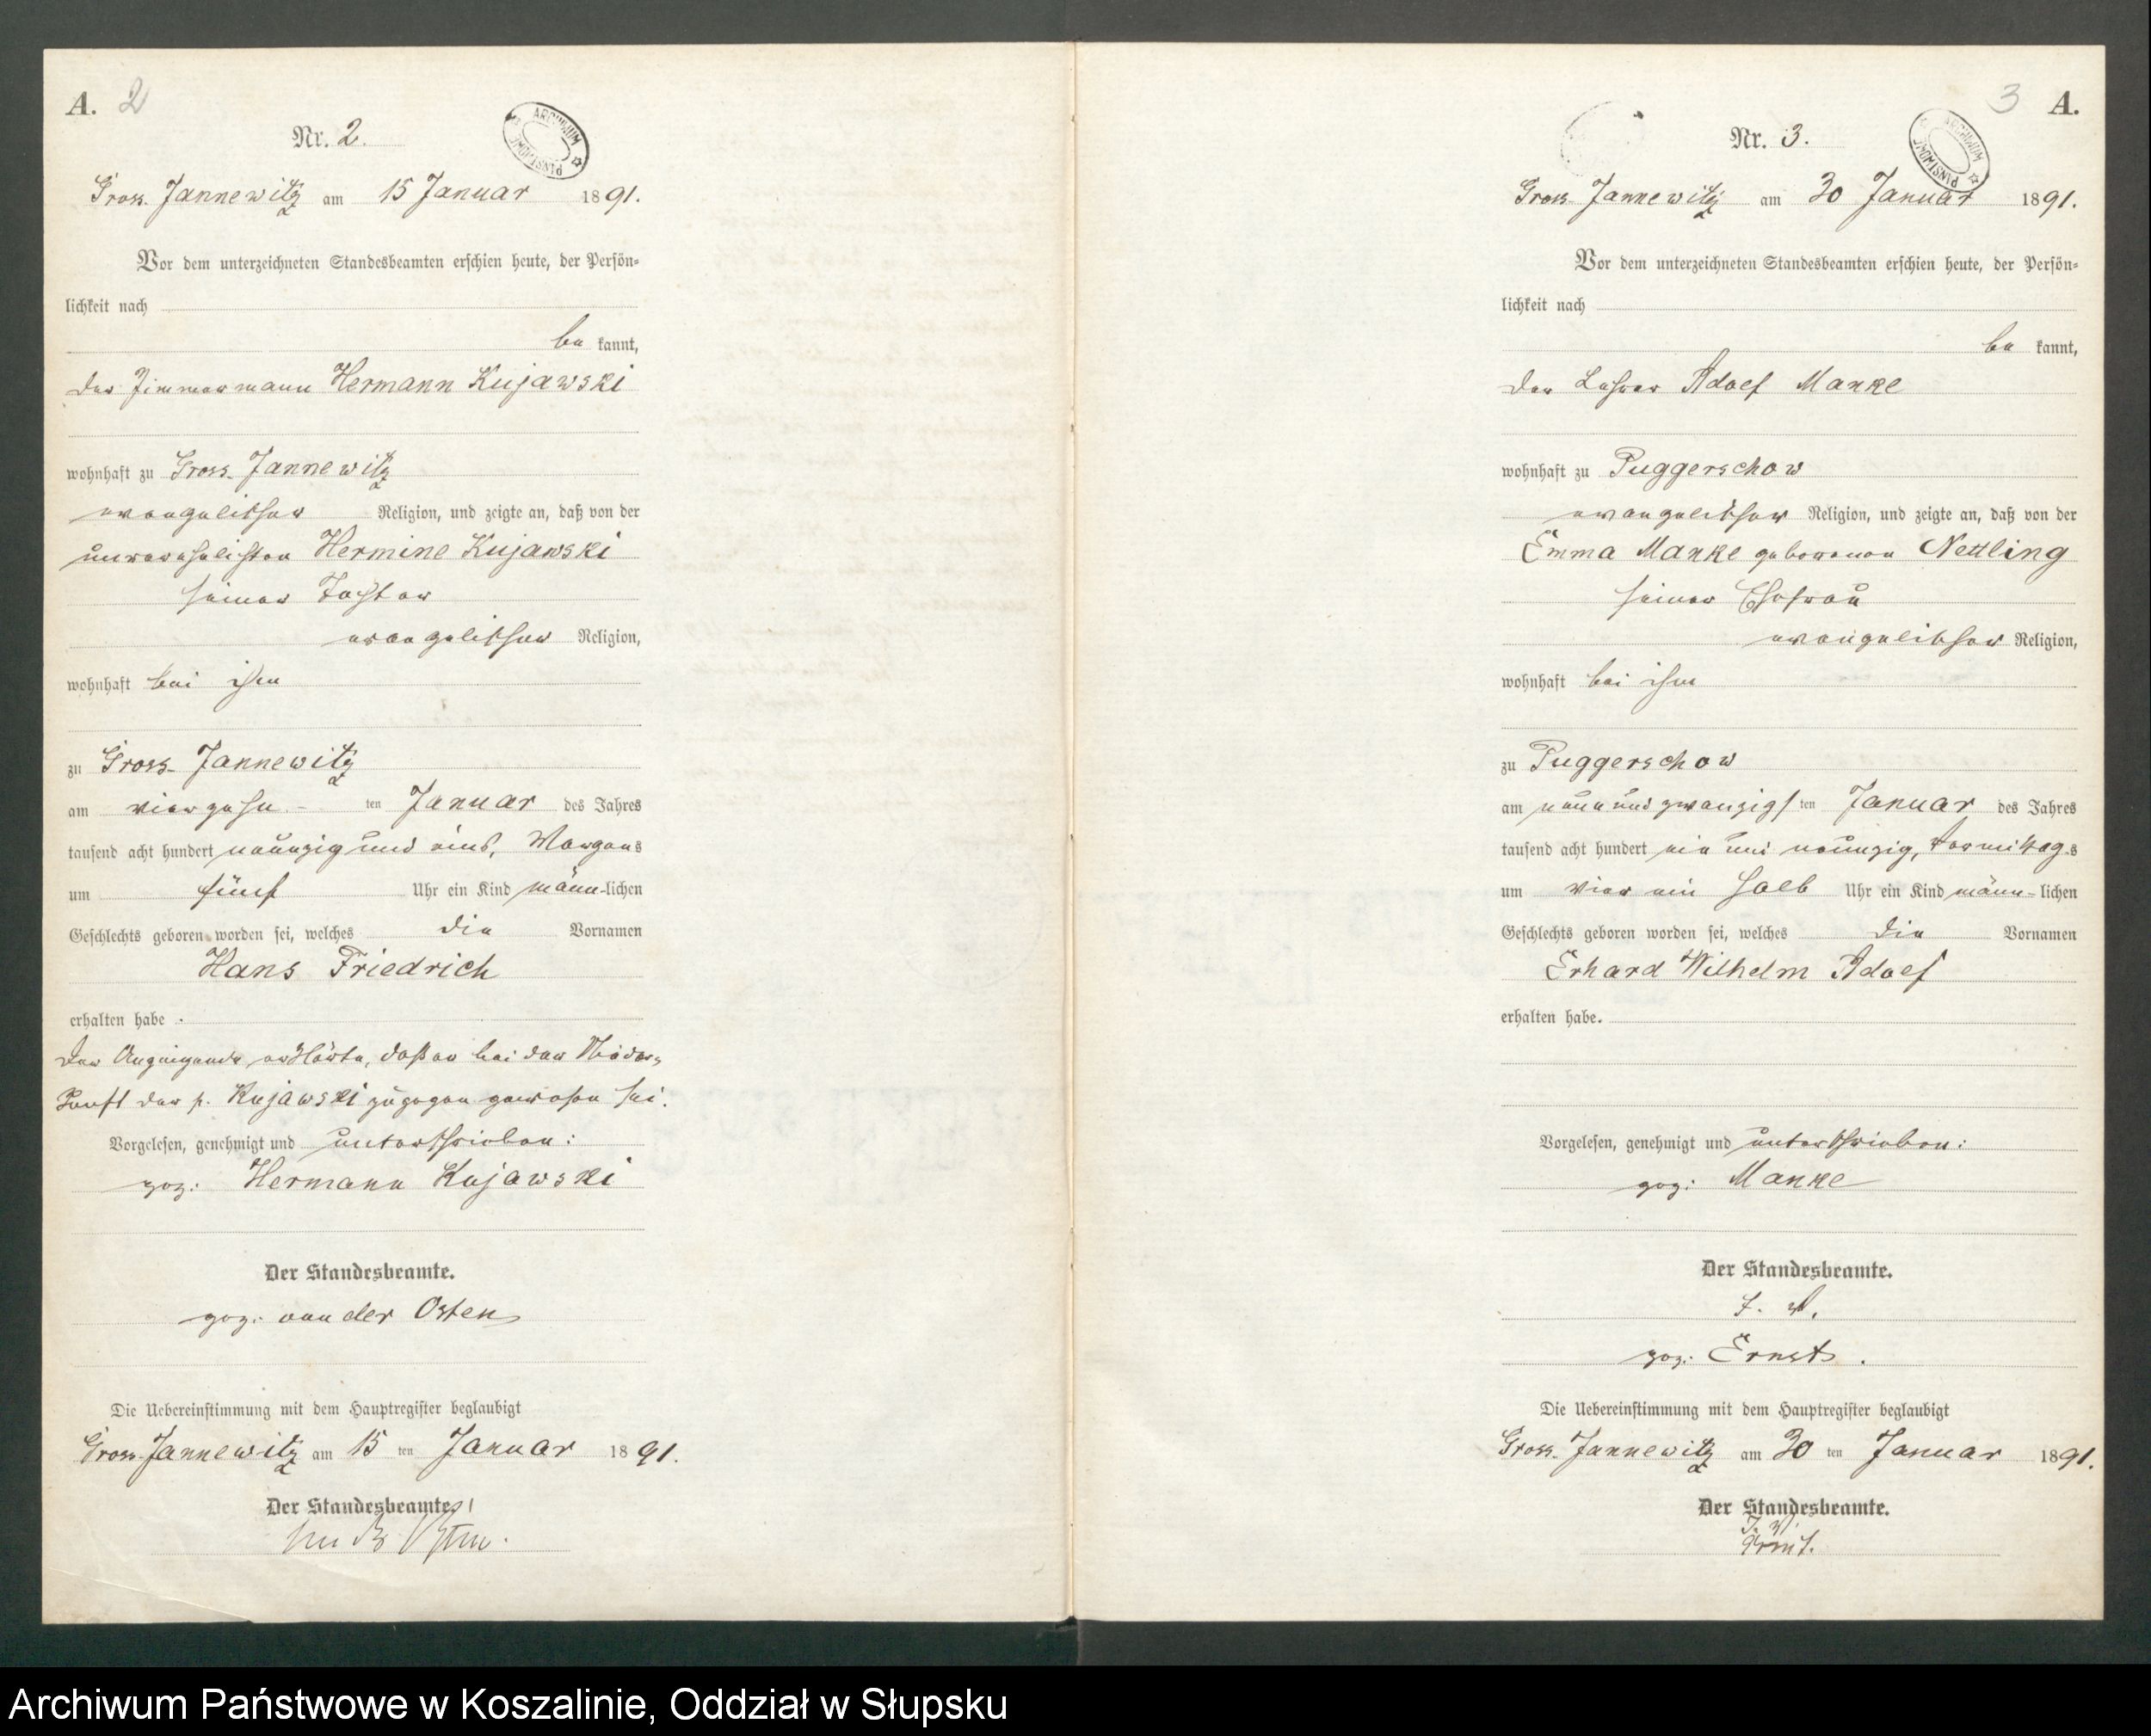 A. 2
Nr. 2.
ARCHIWUM PAŃSTWOWE
Gross. Jannewitz am 15 Januar 1891.
Vor dem unterzeichneten Standesbeamten erschien heute, der Persön-
lichkeit nach
be kannt,
der Zimmermann Hermann Kujawski
wohnhaft zu Gross. Jannewitz
evangelischer Religion, und zeigte an, daß von der
unverehelichten Hermine Kujawski
seiner Tochter
evangelischer Religion,
wohnhaft bei ihm
zu Gross. Jannewitz
am vierzehn ten Januar des Jahres
tausend acht hundert neunzig und eins, Morgens
um fünf Uhr ein Kind männ-lichen
Geschlechts geboren worden sei, welches die Vornamen
Hans Friedrich
erhalten habe .
Der Anzeigende erklärte, daß er bei der Nieder-
kunft der p. Kujawski zugegen gewesen sei.
Vorgelesen, genehmigt und unterschrieben:
gez: Hermann Kujawski
Der Standesbeamte.
gez: von der Osten
Die Uebereinstimmung mit dem Hauptregister beglaubigt
Gross. Jannewitz am 15 ten Januar 1891.
Der Standesbeamte
von der Osten.
3 A.
Nr. 3.
ARCHIWUM PAŃSTWOWE
Gross. Jannewitz am 30 Januar 1891.
Vor dem unterzeichneten Standesbeamten erschien heute, der Persön-
lichkeit nach
be kannt,
der Lehrer Adolf Manke
wohnhaft zu Puggerschow
evangelischer Religion, und zeigte an, daß von der
Emma Manke geborenen Nettling
seiner Ehefrau
evangelischer Religion,
wohnhaft bei ihm
zu Puggerschow
am neun und zwanzigs ten Januar des Jahres
tausend acht hundert ein und neunzig, Vormittags
um vier ein halb Uhr ein Kind männ-lichen
Geschlechts geboren worden sei, welches die Vornamen
Erhard Wilhelm Adolf
erhalten habe.
Vorgelesen, genehmigt und unterschrieben:
gez: Manke
Der Standesbeamte.
J. V.
gez: Ernst.
Die Uebereinstimmung mit dem Hauptregister beglaubigt
Gross. Jannewitz am 30 ten Januar 1891.
Der Standesbeamte.
J. V.
Ernst.
Archiwum Państwowe w Koszalinie, Oddział w Słupsku